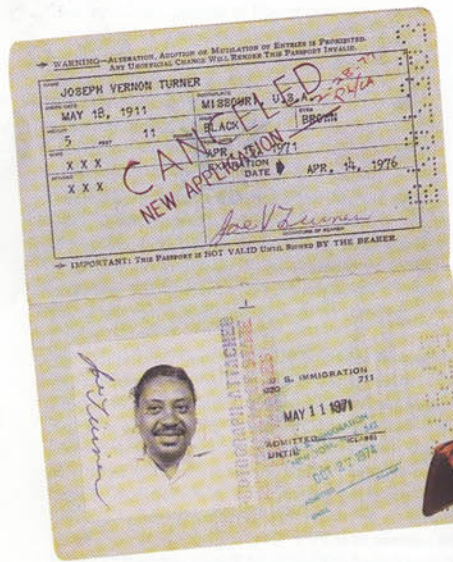 WARNING—ALTERATION, ADDITION OR MUTILATION OF ENTRIES IS PROHIBITED.
ANY UNOFFICIAL CHANGE WILL RENDER THIS PASSPORT INVALID.
NAME
JOSEPH VERNON TURNER
BIRTH DATE
MAY 18, 1911
BIRTHPLACE
MISSOURI, U.S.A.
HEIGHT
5 FEET 11
HAIR
BLACK
EYES
BROWN
X X X
APR. 1971
X X X
EXPIRATION
DATE
APR. 14, 1976
CANCELED
NEW APPLICATION
Joe V Turner
SIGNATURE OF BEARER
IMPORTANT: THIS PASSPORT IS NOT VALID UNTIL SIGNED BY THE BEARER.
Joe Turner
U S. IMMIGRATION
711
MAY 11 1971
ADMITTED
(CLASS)
UNTIL
IMMIGRATION
NEW YORK
OCT 27 1974
ADMITTED
UNTIL